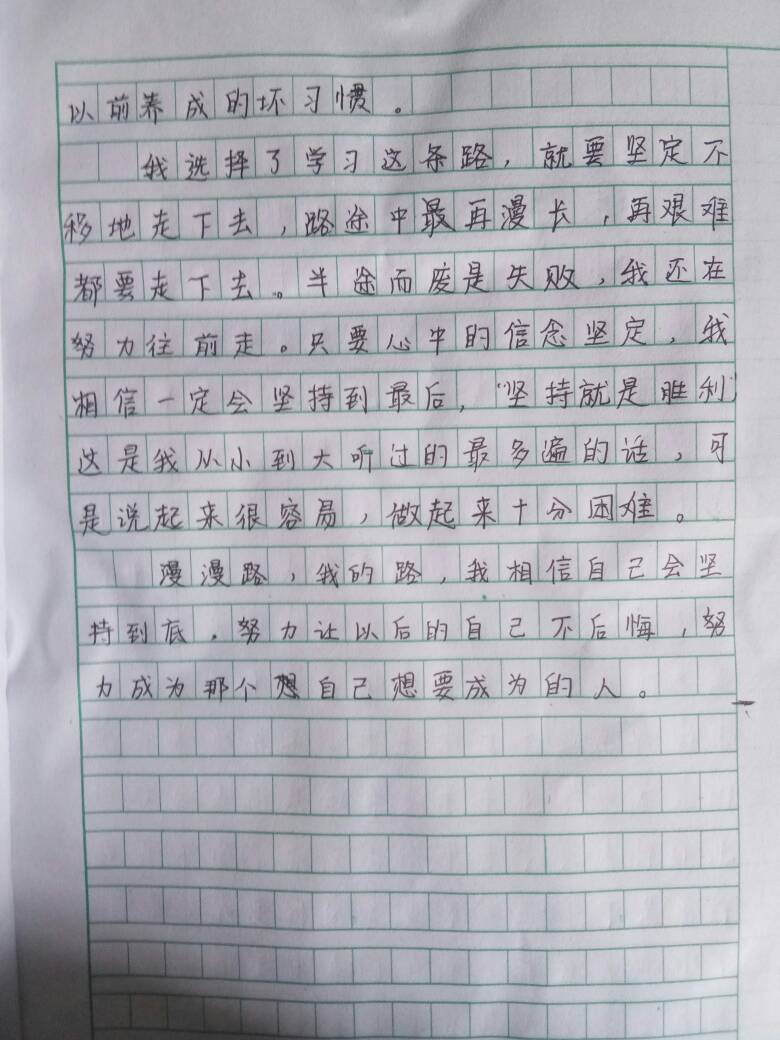 以前养成的坏习惯。
我选择了学习这条路，就要坚定不
移地走下去，路途中最再漫长，再艰难
都要走下去。半途而废是失败，我还在
努力往前走。只要心中的信念坚定，我
相信一定会坚持到最后，“坚持就是胜利”
这是我从小到大听过的最多遍的话，可
是说起来很容易，做起来十分困难。
漫漫路，我的路，我相信自己会坚
持到底，努力让以后的自己不后悔，努
力成为那个想自己想要成为的人。